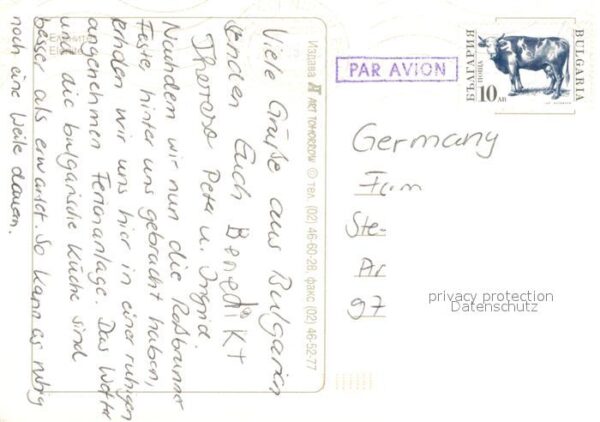 Viele Grüße aus Bulgarien
senden Euch Benedikt
Therese Peter u. Ingrid.
Nachdem wir nun die Roßbrunner
Feste hinter uns gebracht haben,
erholen wir uns hier in einer ruhigen
angenehmen Ferienanlage. Das Wetter
und die bulgarische Küche sind
besser als erwartet. So kann es ruhig
noch eine Weile dauern.
Издава ART TOMORROW © тел. (02) 46-60-28, факс (02) 46-52-77
PAR AVION
БЪЛГАРИЯ
ПОЩА
10 ЛВ
BULGARIA
Germany
Fam
Ste-
97
privacy protection
Datenschutz